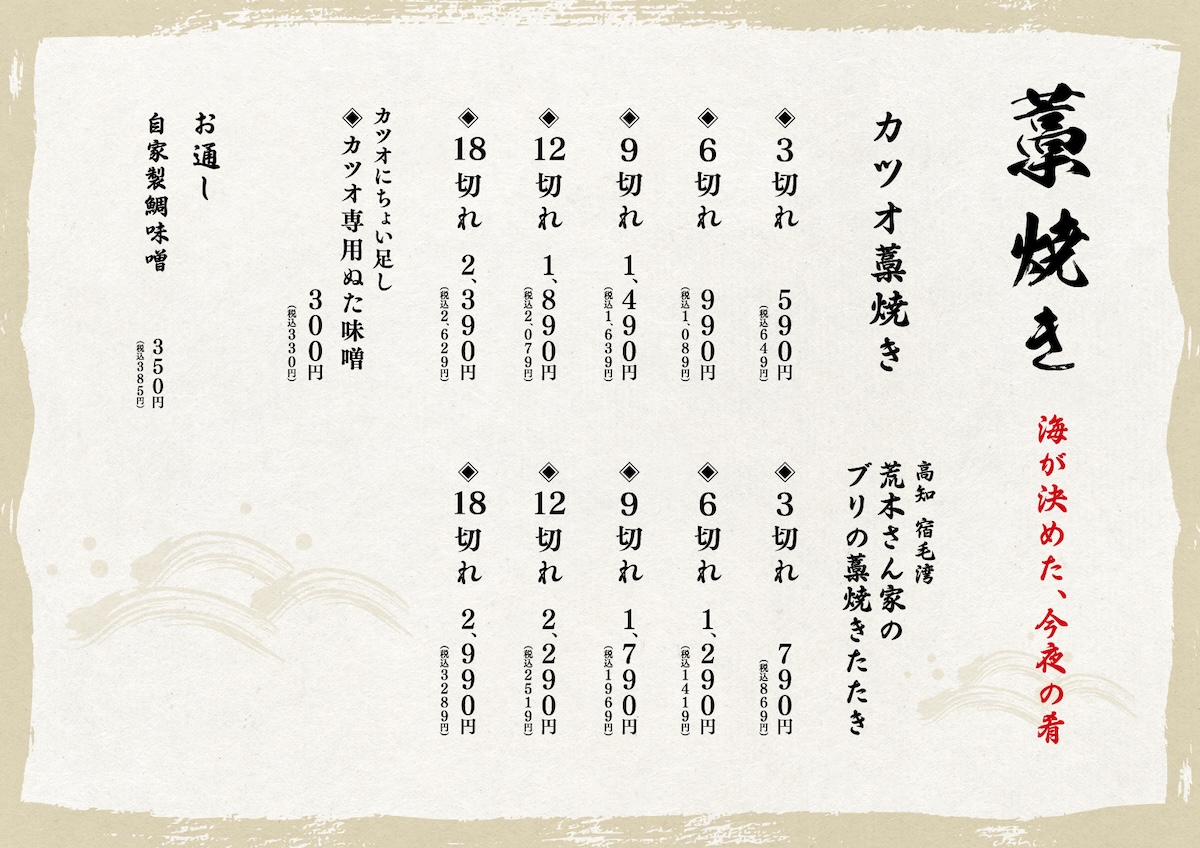 藁焼き
海が決めた、今夜の肴
カツオ藁焼き
◈3切れ 590円
(税込649円)
◈6切れ 990円
(税込1,089円)
◈9切れ 1,490円
(税込1,639円)
◈12切れ 1,890円
(税込2,079円)
◈18切れ 2,390円
(税込2,629円)
カツオにちょい足し
◈カツオ専用ぬた味噌
300円
(税込330円)
お通し
自家製鯛味噌 350円
(税込385円)
高知 宿毛湾
荒木さん家の
ブリの藁焼きたたき
◈3切れ 790円
(税込869円)
◈6切れ 1,290円
(税込1419円)
◈9切れ 1,790円
(税込1969円)
◈12切れ 2,290円
(税込2519円)
◈18切れ 2,990円
(税込3289円)